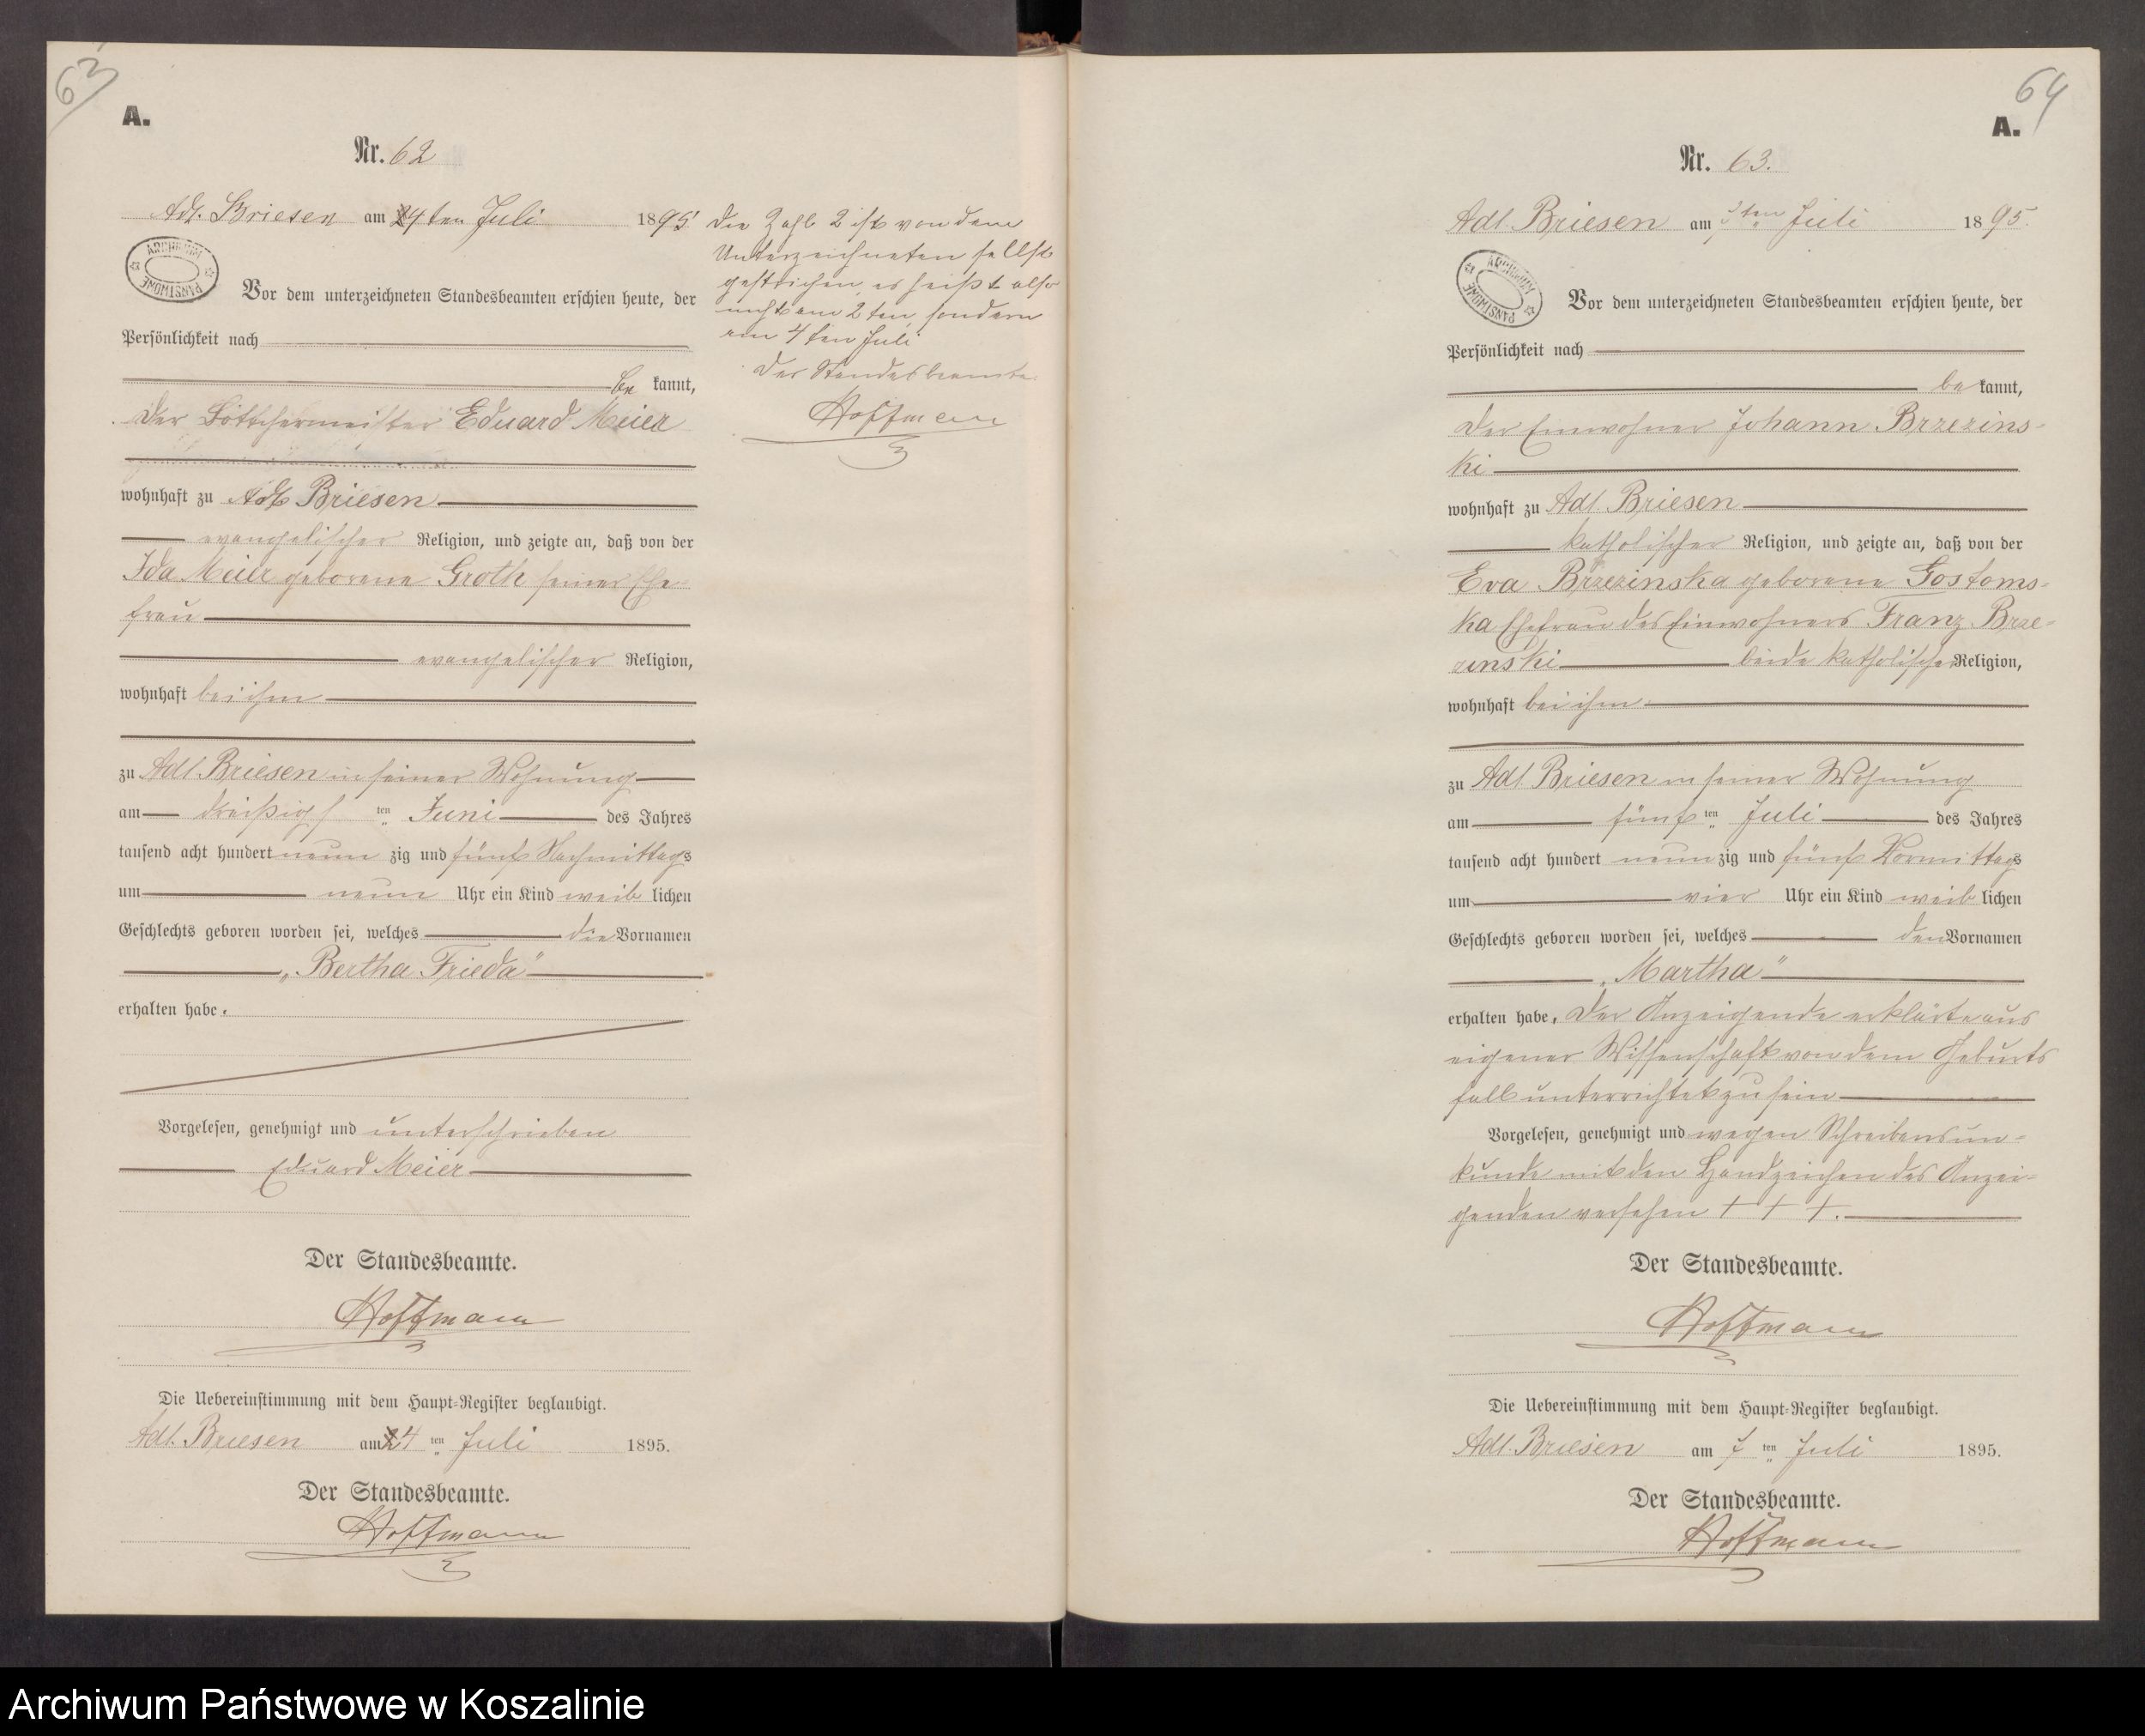 63
A.
Nr. 62
Adl. Briesen am 24ten Juli 1895
ARCHIWUM PAŃSTWOWE
Vor dem unterzeichneten Standesbeamten erschien heute, der
Persönlichkeit nach
be kannt,
der Böttchermeister Eduard Meier
wohnhaft zu Adl. Briesen
evangelischer Religion, und zeigte an, daß von der
Ida Meier geborene Groth seiner Ehe
frau
evangelischer Religion,
wohnhaft bei ihm
zu Adl. Briesen in seiner Wohnung
am dreißigs ten Juni des Jahres
tausend acht hundert neun zig und fünf Nachmittags
um neun Uhr ein Kind weib lichen
Geschlechts geboren worden sei, welches die Vornamen
„Bertha Frieda"
erhalten habe.
Vorgelesen, genehmigt und unterschrieben
Eduard Meier
Der Standesbeamte.
Hoffmann
Die Uebereinstimmung mit dem Haupt-Register beglaubigt.
Adl. Briesen am 24 ten Juli 1895.
Der Standesbeamte.
Hoffmann
Die Zahl 2 ist von dem
Unterzeichneten selbst
gestrichen, es heißt also
nicht am 2ten, sondern
am 4ten Juli
Der Standesbeamte
Hoffmann
64
A.
Nr. 63.
Adl. Briesen am 7ten Juli 1895.
ARCHIWUM PAŃSTWOWE
Vor dem unterzeichneten Standesbeamten erschien heute, der
Persönlichkeit nach
be kannt,
der Einwohner Johann Brzezins-
ki
wohnhaft zu Adl. Briesen
katholischer Religion, und zeigte an, daß von der
Eva Brzezinska geborene Gostoms-
ka Ehefrau des Einwohners Franz Brze-
zinski beide katholischer Religion,
wohnhaft bei ihm
zu Adl. Briesen in seiner Wohnung
am fünf ten Juli des Jahres
tausend acht hundert neun zig und fünf Vormittags
um vier Uhr ein Kind weib lichen
Geschlechts geboren worden sei, welches den Vornamen
„Martha"
erhalten habe. Der Anzeigende erklärte aus
eigener Wissenschaft von dem Geburts
fall unterrichtet zu sein
Vorgelesen, genehmigt und wegen Schreibensun-
kunde mit den Handzeichen des Anzei-
genden versehen + + +.
Der Standesbeamte.
Hoffmann
Die Uebereinstimmung mit dem Haupt-Register beglaubigt.
Adl. Briesen am 7 ten Juli 1895.
Der Standesbeamte.
Hoffmann
Archiwum Państwowe w Koszalinie